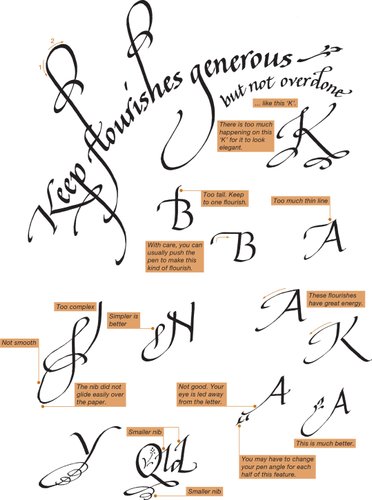 2
1
Keep flourishes generous
but not overdone
... like this 'K'.
There is too much
happening on this
'K' for it to look
elegant.
K
Too tall. Keep
to one flourish.
Too much thin line
B
B
A
With care, you can
usually push the
pen to make this
kind of flourish.
Too complex
Simpler is
better
These flourishes
have great energy.
A
N
N
K
Not smooth
The nib did not
glide easily over
the paper.
Not good. Your
eye is led away
from the letter.
A
A
This is much better.
Smaller nib
Y
Qld
You may have to change
your pen angle for each
half of this feature.
Smaller nib